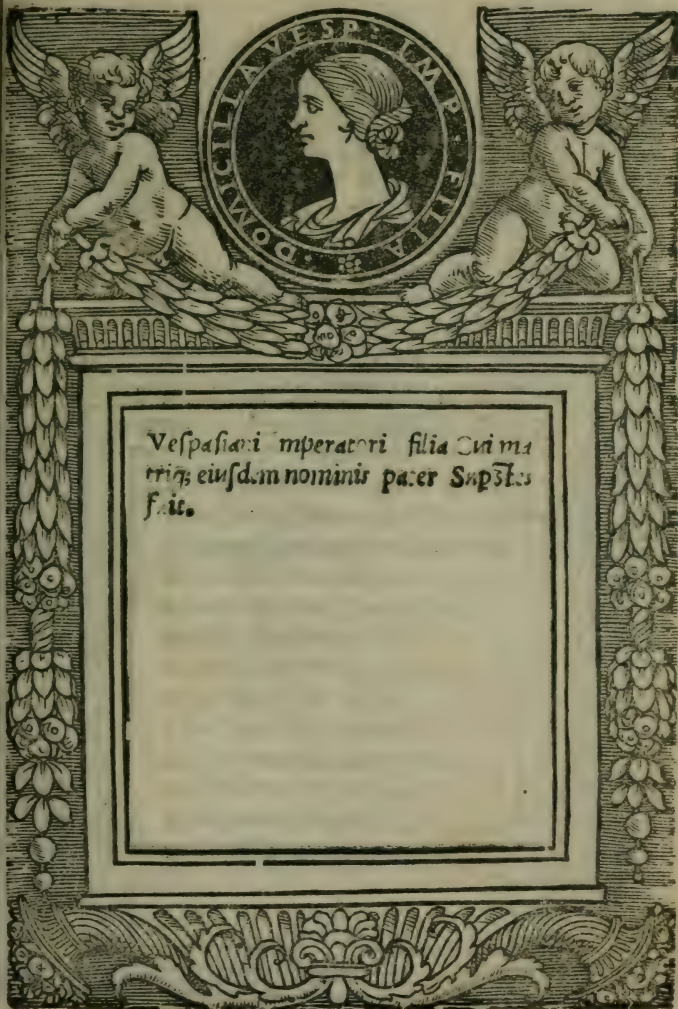 DOMICILLA VESP· IMP· FILIA·
Veſpaſiani Imperatori filia Cui ma
triq; eiuſdem nominis pater Supſt̄es
fuit.